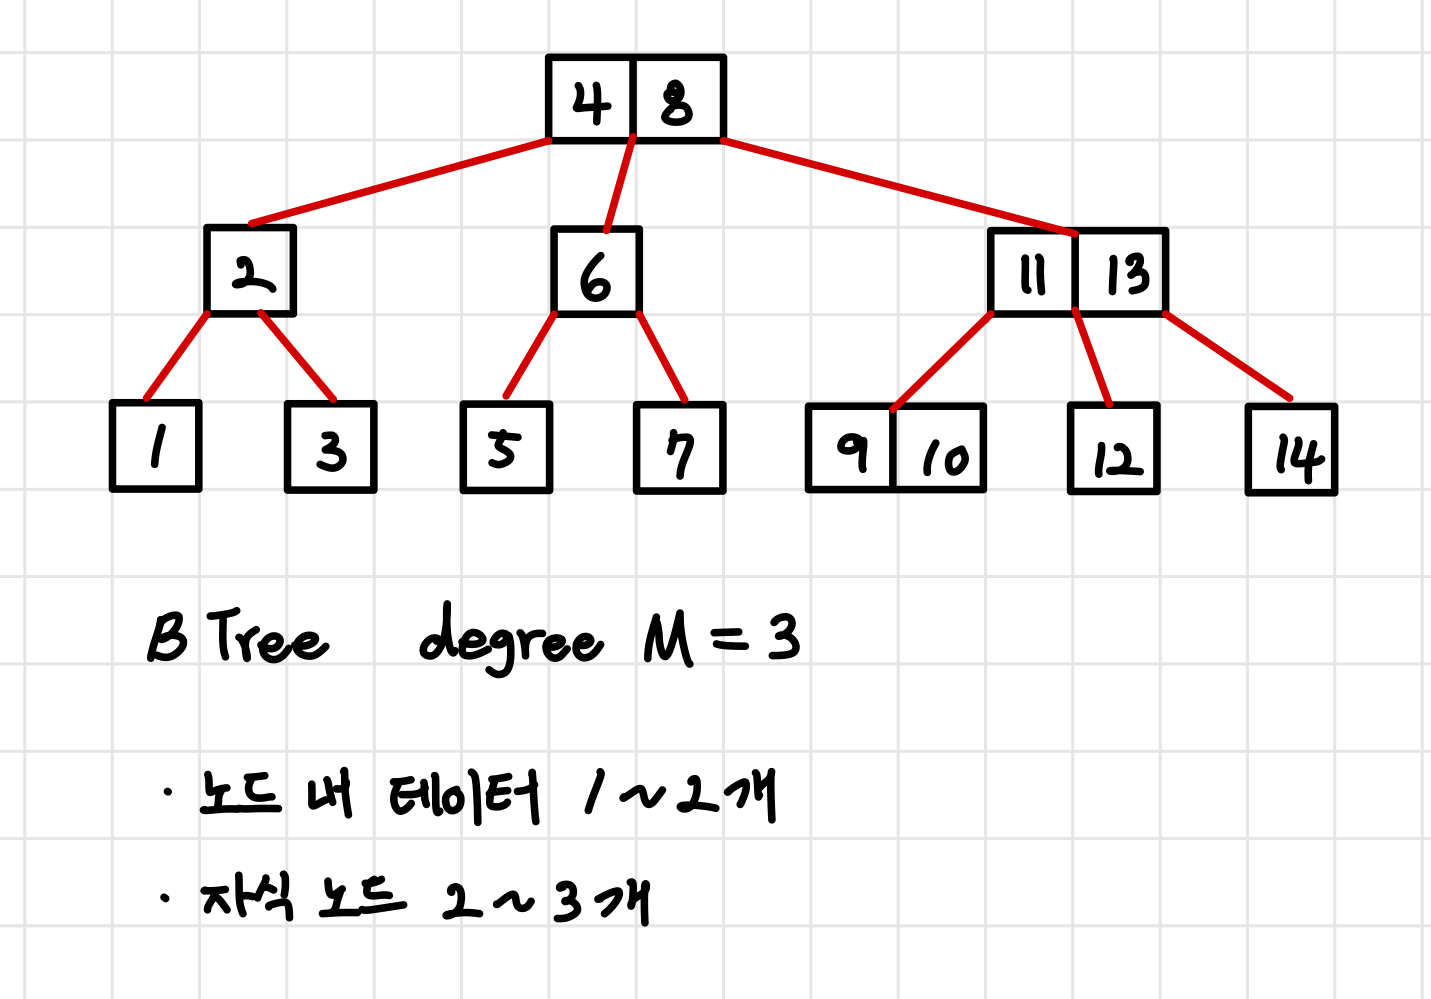 4 8
2 6 11 13
1 3 5 7 9 10 12 14
B Tree degree M = 3
· 노드 내 테이터 1 ~ 2개
· 자식 노드 2 ~ 3개